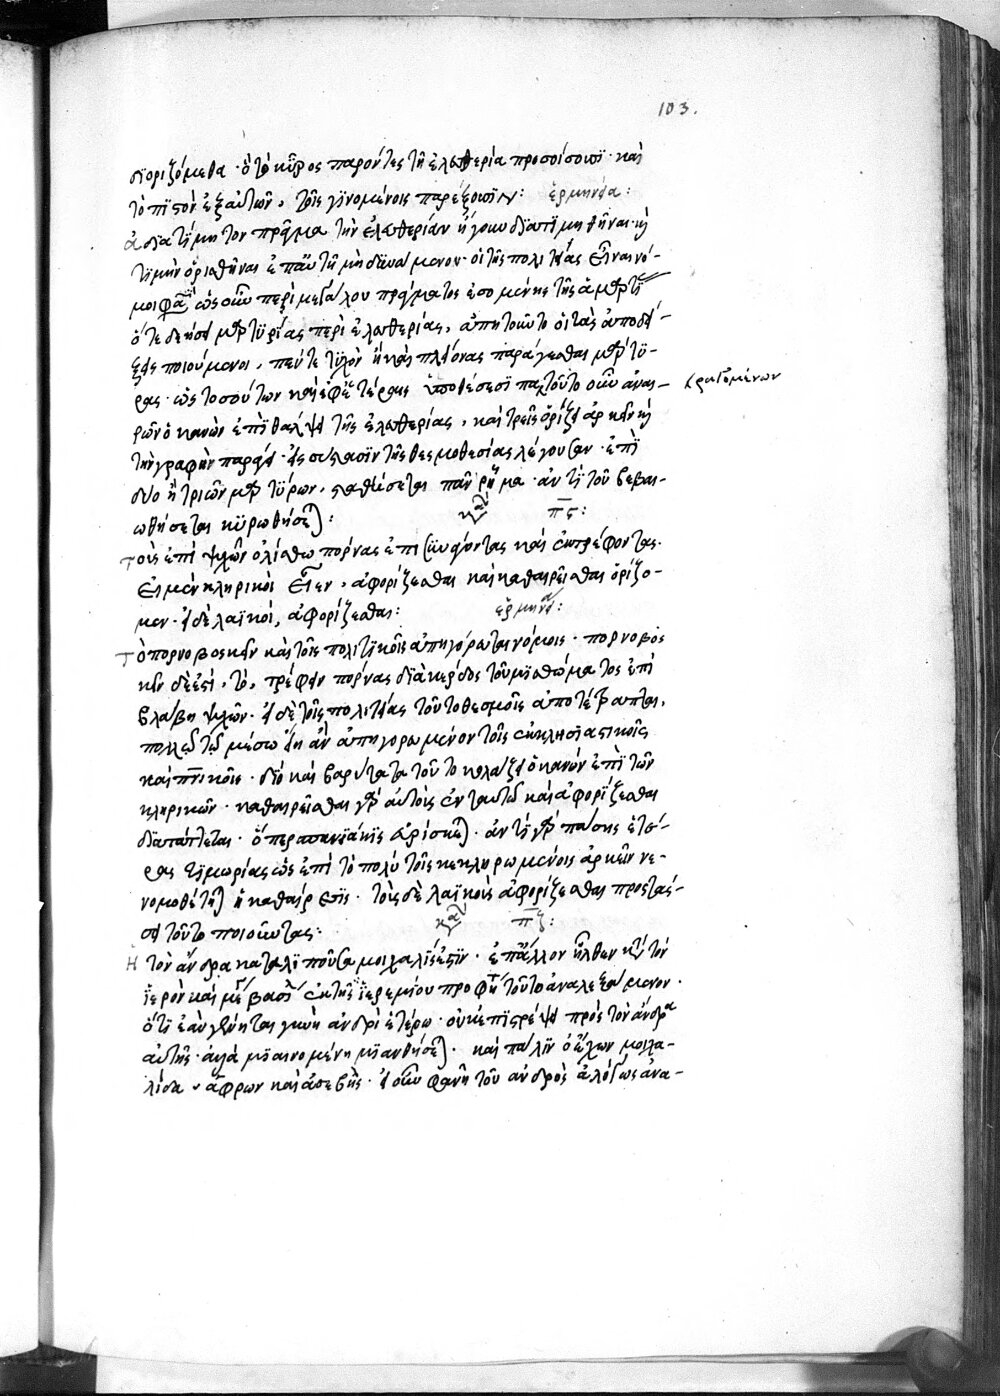 103.
διοριζόμεθα · ὃ τὸ κῦρος παρόντες τῆ ἐλευθερία προσοίσουσι · καὶ
τὸ πιστὸν ἐξ αὐτῶν, τοῖς γινομένοις παρέξουσιν : ἑρμηνεία :
ἀδιατίμητον πρᾶγμα τὴν ἐλευθερίαν ἤγουν διατιμηθῆναι ἢ
τιμὴν ὁρισθῆναι ἐπ αὐτῆ μὴ δυναμένου · οἱ τῆς πολιτείας εἶναι νό-
μοι φασὶ ὡς οὖν περὶ μεγάλου πράγματος ἐσομένης τῆς ἀμαρτι
ὅτε δεήσει μαρτυρίας περὶ ἐλευθερίας, ἀπητοῦντο οἱ τὰς ἀποδεί-
ξεις ποιούμενοι, πέντε τυχὸν ἢ καὶ πλείονας παράγεσθαι μάρτυ-
ρας · ὡς τοσούτων καὶ ἐφ ἑτέραις ὑποθέσεσι παρὰ τοῦτο οὖν ἀναι- κρατουμένων
ρῶν ὁ κανὼν ἐπιθαλψει τῆς ἐλευθερίας, καὶ τρεῖς ὁρίζει ἀρκεῖν ἢ
τὴν γραφὴν παράγει · εἰς συέλασιν τῆς θεσμοθεσίας λέγουσαν · ἐπὶ
δύο ἢ τριῶν μαρτύρων, σταθήσεται πᾶν ῥῆμα · ἀντὶ τοῦ βεβαι-
ωθήσεται κυρωθήσεται :
καν πς :
Τοὺς ἐπὶ ψυχῶν ὀλίσθω πόρνας ἐπισυνάγοντας καὶ ἐκτρέφοντας.
εἰ μὲν κληρικοὶ εἶεν, ἀφορίζεσθαι καὶ καθαιρεῖσθαι ὁρίζο-
μεν · εἰ δὲ λαϊκοί, ἀφορίζεσθαι : ἑρμηνεία :
Τὸ πορνοβοσκεῖν καὶ τοῖς πολιτικοῖς ἀπηγόρευται νόμοις · πορνοβοσ
κεῖν δέ ἐστι, τὸ, τρέφειν πόρνας διὰ κέρδος τοῦ μισθώματος ἐπὶ
βλάβη ψυχῶν · εἰ δὲ τοῖς πολιτείας τοῦτο θεσμοῖς ἀποτέτραπται,
πολλῶ τῶ μέσω εἴη ἂν ἀπηγορευμένον τοῖς ἐκκλησιαστικοῖς
καὶ πνικοῖς · διὸ καὶ βαρύτατα τοῦτο κολάζει ὁ κανών ἐπὶ τῶν
κληρικῶν · καθαιρεῖσθαι γὰρ αὐτοὺς ἐν ταυτῶ καὶ ἀφορίζεσθαι
διατάττεται · ὅπερ σπανιάκις εὑρίσκεται · ἀντὶ γὰρ πάσης ἑτέ-
ρας τιμωρίας ὡς ἐπὶ τὸ πολὺ τοῖς κεκληρωμένοις ἀρκεῖν νε-
νομοθέτηται ἡ καθαίρεσις · τοὺς δὲ λαϊκοὺς ἀφορίζεσθαι προστάσ-
σει τοῦτο ποιοῦντας :
καν πζ :
Ἡ τὸν ἄνδρα καταλιποῦσα μοιχαλίς ἐστιν · ἐπ ἄλλον ἦλθεν κατὰ τὸν
ἱερὸν καὶ μέγαν βασίλειον ἐκ τῆς ἱερεμίου προφητείας τοῦτο ἀναλεξάμενον ·
ὅτι ἐὰν γένηται γυνὴ ἀνδρὶ ἑτέρω · οὐκ ἐπιστρέψει πρὸς τὸν ἄνδρα
αὐτῆς · ἀλλὰ μιαινομένη μιανθήσεται · καὶ πάλιν ὁ ἔχων μοιχα-
λίδα, ἄφρων καὶ ἀσεβής · εἰ οὖν φανῆ τοῦ ἀνδρὸς ἀλόγως ἀνα-